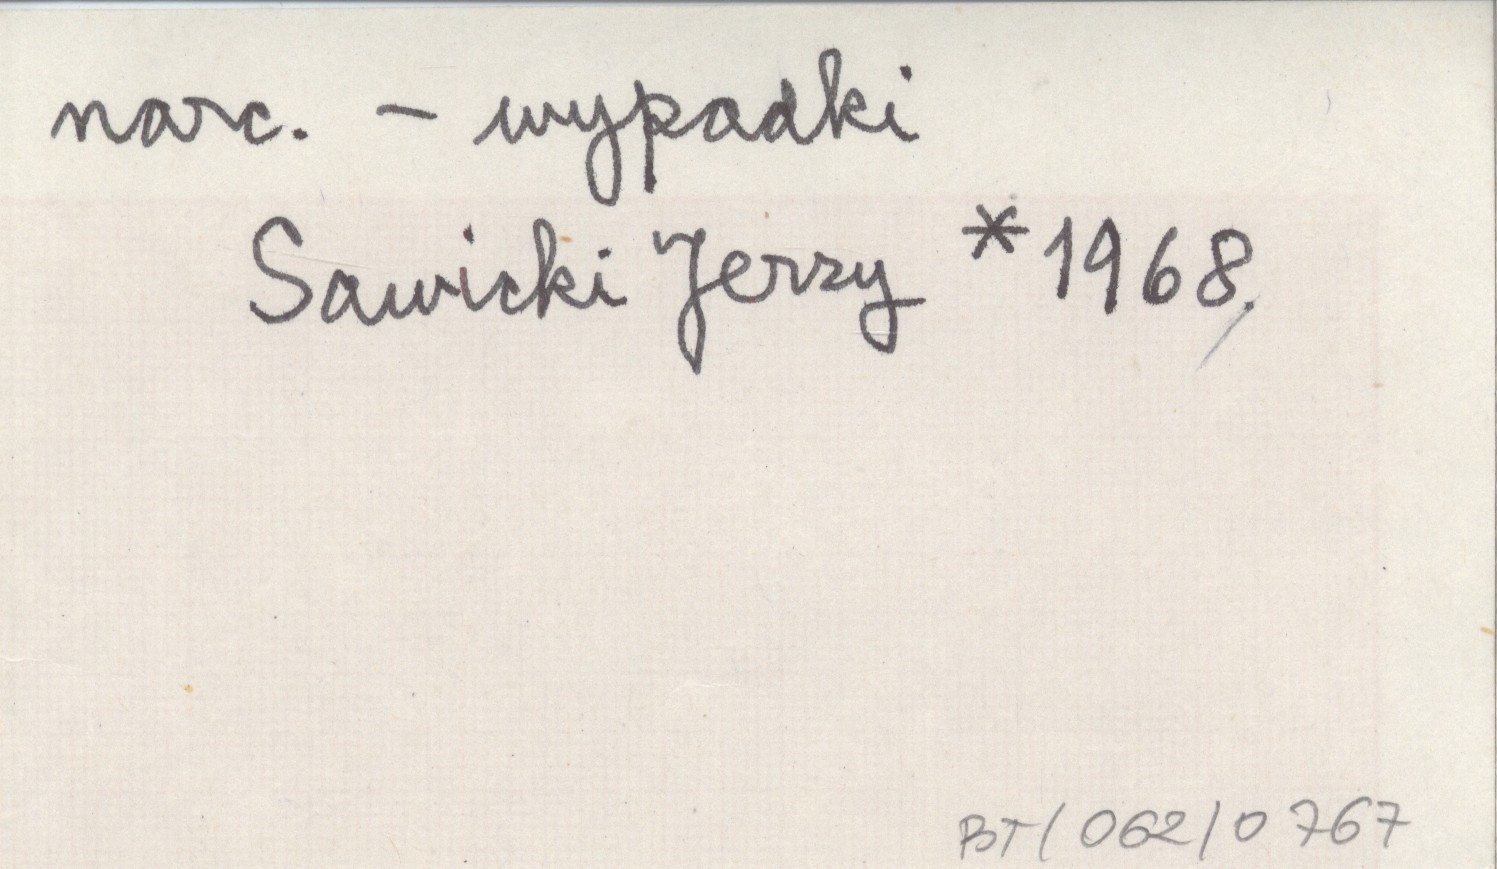 narc. – wypadki
Sawicki Jerzy *1968.
BT/062/0767